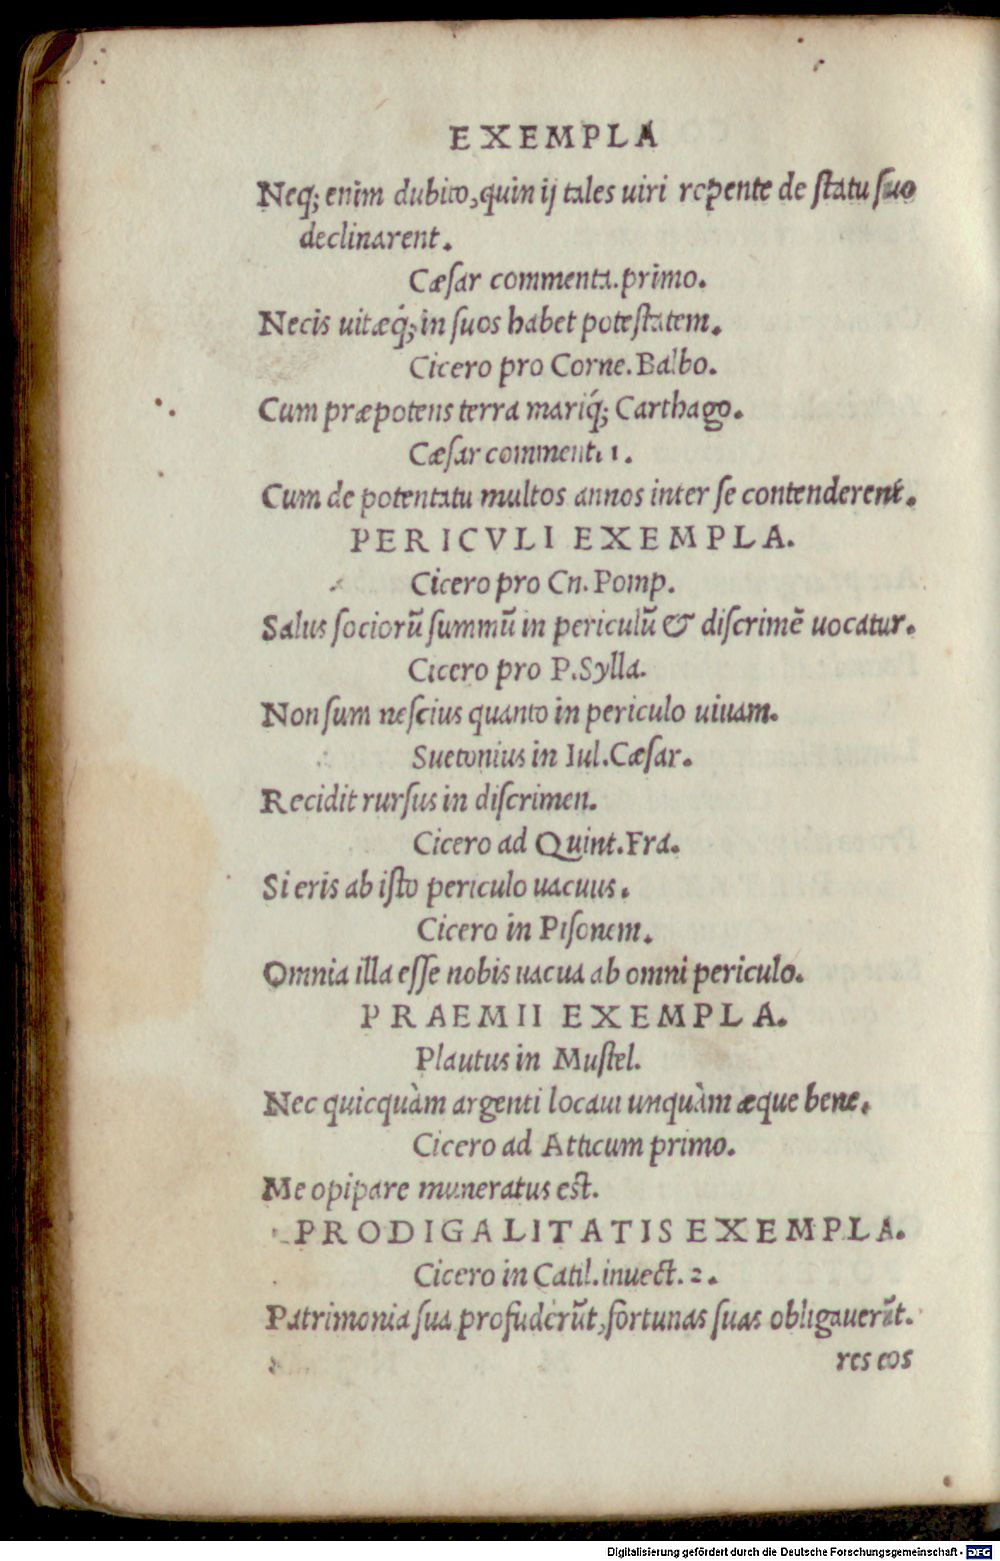 EXEMPLA
Neq; enim dubito, quin ij tales uiri repente de ſtatu ſuo
declinarent.
Cæſar commenta. primo.
Necis uitæq́; in ſuos habet poteſtatem.
Cicero pro Corne. Balbo.
Cum præpotens terra mariq́; Carthago.
Cæſar comment. 1.
Cum de potentatu multos annos inter ſe contenderent.
PERICVLI EXEMPLA.
Cicero pro Cn. Pomp.
Salus ſociorũ ſummũ in periculũ & diſcrimẽ uocatur.
Cicero pro P. Sylla.
Non ſum neſcius quanto in periculo uiuam.
Suetonius in Iul. Cæſar.
Recidit rurſus in diſcrimen.
Cicero ad Quint. Fra.
Si eris ab iſto periculo uacuus.
Cicero in Piſonem.
Omnia illa eſſe nobis uacua ab omni periculo.
PRAEMII EXEMPLA.
Plautus in Muſtel.
Nec quicquàm argenti locaui unquàm æque bene.
Cicero ad Atticum primo.
Me opipare muneratus est.
PRODIGALITATIS EXEMPLA.
Cicero in Catil. inuect. 2.
Patrimonia ſua profuderũt, fortunas ſuas obligauerũt.
res eos
Digitalisierung gefördert durch die Deutsche Forschungsgemeinschaft - DFG